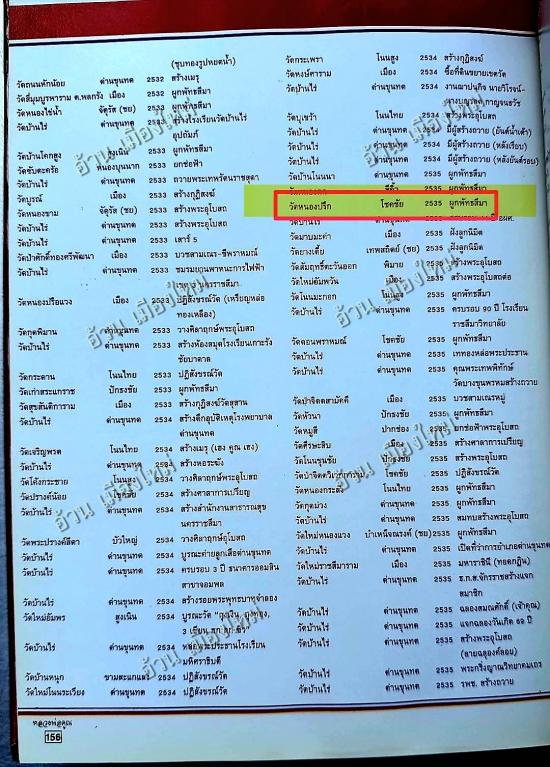 (ชุบทองรูปหยดน้ำ)
วัดถนนหักน้อย ด่านขุนทด 2532 สร้างเมรุ
วัดสี่มุมบูรพาราม ต.พลกรัง เมือง 2533 ผูกพัทธสีมา
วัดหนองไข่น้ำ จัตุรัส (ชย) 2533 ผูกพัทธสีมา
วัดบ้านไร่ ด่านขุนทด 2533 สร้างโรงเรียนวัดบ้านไร่
อุปถัมภ์
วัดบ้านโคกสูง สูงเนิน 2533 ผูกพัทธสีมา
วัดซับตะคร้อ หนองบุนนาก 2533 ยกช่อฟ้า
วัดบ้านไร่ ด่านขุนทด 2533 ถวายพระเทพรัตนราชสุดา
วัดบูรณ์ เมือง 2533 สร้างกุฏิสงฆ์
วัดหนองขาม จัตุรัส (ชย) 2533 สร้างพระอุโบสถ
วัดบ้านไร่ ด่านขุนทด 2533 สร้างพระอุโบสถ
วัดบ้านไร่ ด่านขุนทด 2533 เสาร์ 5
วัดป่าศักดิ์ทองศรีพัฒนา เมือง 2533 บวชสามเณร-ชีพราหมณ์
วัดบ้านไร่ ด่านขุนทด 2533 ชมรมยุถนพาหนะการไฟฟ้า
เขต นครราชสีมา
วัดหนองปรือแวง เมือง 2533 ปฏิสังขรณ์วัด (เหรียญหล่อ
ทองเหลือง)
วัดกุดพิมาน ด่านขุนทด 2533 วางศิลาฤกษ์พระอุโบสถ
วัดบ้านไร่ ด่านขุนทด 2533 สร้างห้องสมุดโรงเรียนเกาะรัง
ชัยบาดาล
วัดกระดาน โนนไทย 2533 ปฏิสังขรณ์วัด
วัดเก่าสระแกราช ปักธงชัย 2533 ผูกพัทธสีมา
วัดสุขสันติการาม เมือง 2533 สร้างกุฏิสงฆ์วัดสุสาน
วัดบ้านไร่ ด่านขุนทด 2533 สร้างตึกอุบัติเหตุโรงพยาบาล
ด่านขุนทด
วัดเจริญพรต โนนไทย 2534 สร้างเมรุ (เฮง คูณ เฮง)
วัดบ้านไร่ ด่านขุนทด 2534 สร้างหอระฆัง
วัดโค้งกระชาย โนนสูง 2534 วางศิลาฤกษ์พระอุโบสถ
วัดปรางค์น้อย โชคชัย 2534 สร้างศาลาการเปรียญ
วัดบ้านไร่ ด่านขุนทด 2534 สร้างสำนักงานสาธารณสุข
นครราชสีมา
วัดพระปรางค์สีดา บัวใหญ่ 2534 วางศิลาฤกษ์อุโบสถ
วัดบ้านไร่ ด่านขุนทด 2534 บูรณะค่ายลูกเสือด่านขุนทด
วัดบ้านไร่ ด่านขุนทด 2534 ครบรอบ 3 ปี ธนาคารออมสิน
สาขาจอมพล
วัดบ้านไร่ ด่านขุนทด 2534 สร้างรอบพระพุทธบาทจำลอง
วัดใหม่อัมพร สูงเนิน 2534 บูรณะวัด "ถุงเงิน, ถุงทอง,
วัดบ้านไร่ ด่านขุนทด 2534 หล่อพระประธานโรงเรียน
มหิศราธิบดี
วัดบ้านหนุก ขามสะแกแสง 2534 ปฏิสังขรณ์วัด
วัดใหม่โนนระเวียง ด่านขุนทด 2534 ปฏิสังขรณ์วัด
วัดกระเพรา โนนสูง 2534 สร้างกุฏิสงฆ์
วัดหงษ์ดาราม เมือง 2534 ซื้อที่ดินขยายเขตวัด
วัดบ้านไร่ ด่านขุนทด 2534 งานฌาปนกิจ นายวิโรจน์-
วัดบุเขว้า โนนไทย 2534 สร้างพระอุโบสถ
วัดบ้านไร่ ด่านขุนทด 2534 มีผู้สร้างถวาย (ยันต์น้ำเต้า)
วัดบ้านไร่ ด่านขุนทด 2534 มีผู้สร้างถวาย (หลังเรียบ)
วัดบ้านไร่ ด่านขุนทด 2534 มีผู้สร้างถวาย (หลังยันต์รอบ)
วัดบ้านโนนนา ด่านขุนทด 2535 ผูกพัทธสีมา
2535 ผูกพัทธสีมา
วัดหนองปรึก โชคชัย 2535 ผูกพัทธสีมา
วัดบ้านไร่ ด่านขุนทด 2535
วัดมาบมะค่า เมือง 2535 ฝังลูกนิมิต
วัดยางเตี้ย เทพสถิตย์ (ชย) 2535 ฝังลูกนิมิต
วัดสัมฤทธิ์ตะวันออก พิมาย 2535 สร้างพระอุโบสถ
วัดใหม่อัมพวัน เมือง 2535 สร้างพระอุโบสถต่อ
วัดโนนมะกอก โนนสูง 2535 ผูกพัทธสีมา
วัดบ้านไร่ ด่านขุนทด 2535 ครบรอบ 90 ปี โรงเรียน
ราชสีมาวิทยาลัย
วัดดอนพราหมณ์ โชคชัย 2535 ผูกพัทธสีมา
วัดบ้านไร่ ด่านขุนทด 2535 เททองหล่อพระประธาน
วัดบ้านไร่ ด่านขุนทด 2535 คุณพระเทพพิทักษ์
วัดบางขุนพรหมสร้างถวาย
วัดป่าจิตตสามัคคี เมือง 2535 บวชสามเณรหมู่
วัดหัวนา ปักธงชัย 2535 ผูกพัทธสีมา
วัดหมูสี ปากช่อง 2535 ยกช่อฟ้าพระอุโบสถ
วัดศีรษะลิบ เมือง 2535 สร้างศาลาการเปรียญ
วัดโนนขุนชัย ปักธงชัย 2535 สร้างพระอุโบสถ
โชคชัย 2535 ปฏิสังขรณ์วัด
วัดหนองกระสัง โนนไทย 2535 ผูกพัทธสีมา
วัดกุดม่วง ด่านขุนทด 2535 ผูกพัทธสีมา
วัดบ้านไร่ ด่านขุนทด 2535 สมทบสร้างพระอุโบสถ
วัดใหม่หนองแวง บำเหน็จณรงค์ (ชย) 2535 ผูกพัทธสีมา
วัดบ้านไร่ ด่านขุนทด 2535 เปิดที่ว่าการอำเภอด่านขุนทด
วัดใหม่ราชสีมาราม เมือง 2535 มหาราชินี (ทอดกฐิน)
วัดบ้านไร่ ด่านขุนทด 2535 ธ.ก.ส.จักราชสร้างแจก
สมาชิก
วัดบ้านไร่ ด่านขุนทด 2535 ฉลองสมณศักดิ์ (เจ้าคุณ)
วัดบ้านไร่ ด่านขุนทด 2535 แจกฉลองวันเกิด 69 ปี
วัดบ้านไร่ ด่านขุนทด 2535 สร้างพระอุโบสถ
(ลายฉลุองค์ลอย)
วัดบ้านไร่ ด่านขุนทด 2535 พระกริ่งญาณวิทยาคมเถร
วัดบ้านไร่ ด่านขุนทด 2535 รพช. สร้างถวาย
หลวงพ่อคูณ
156
อ้วน เมืองใหม่